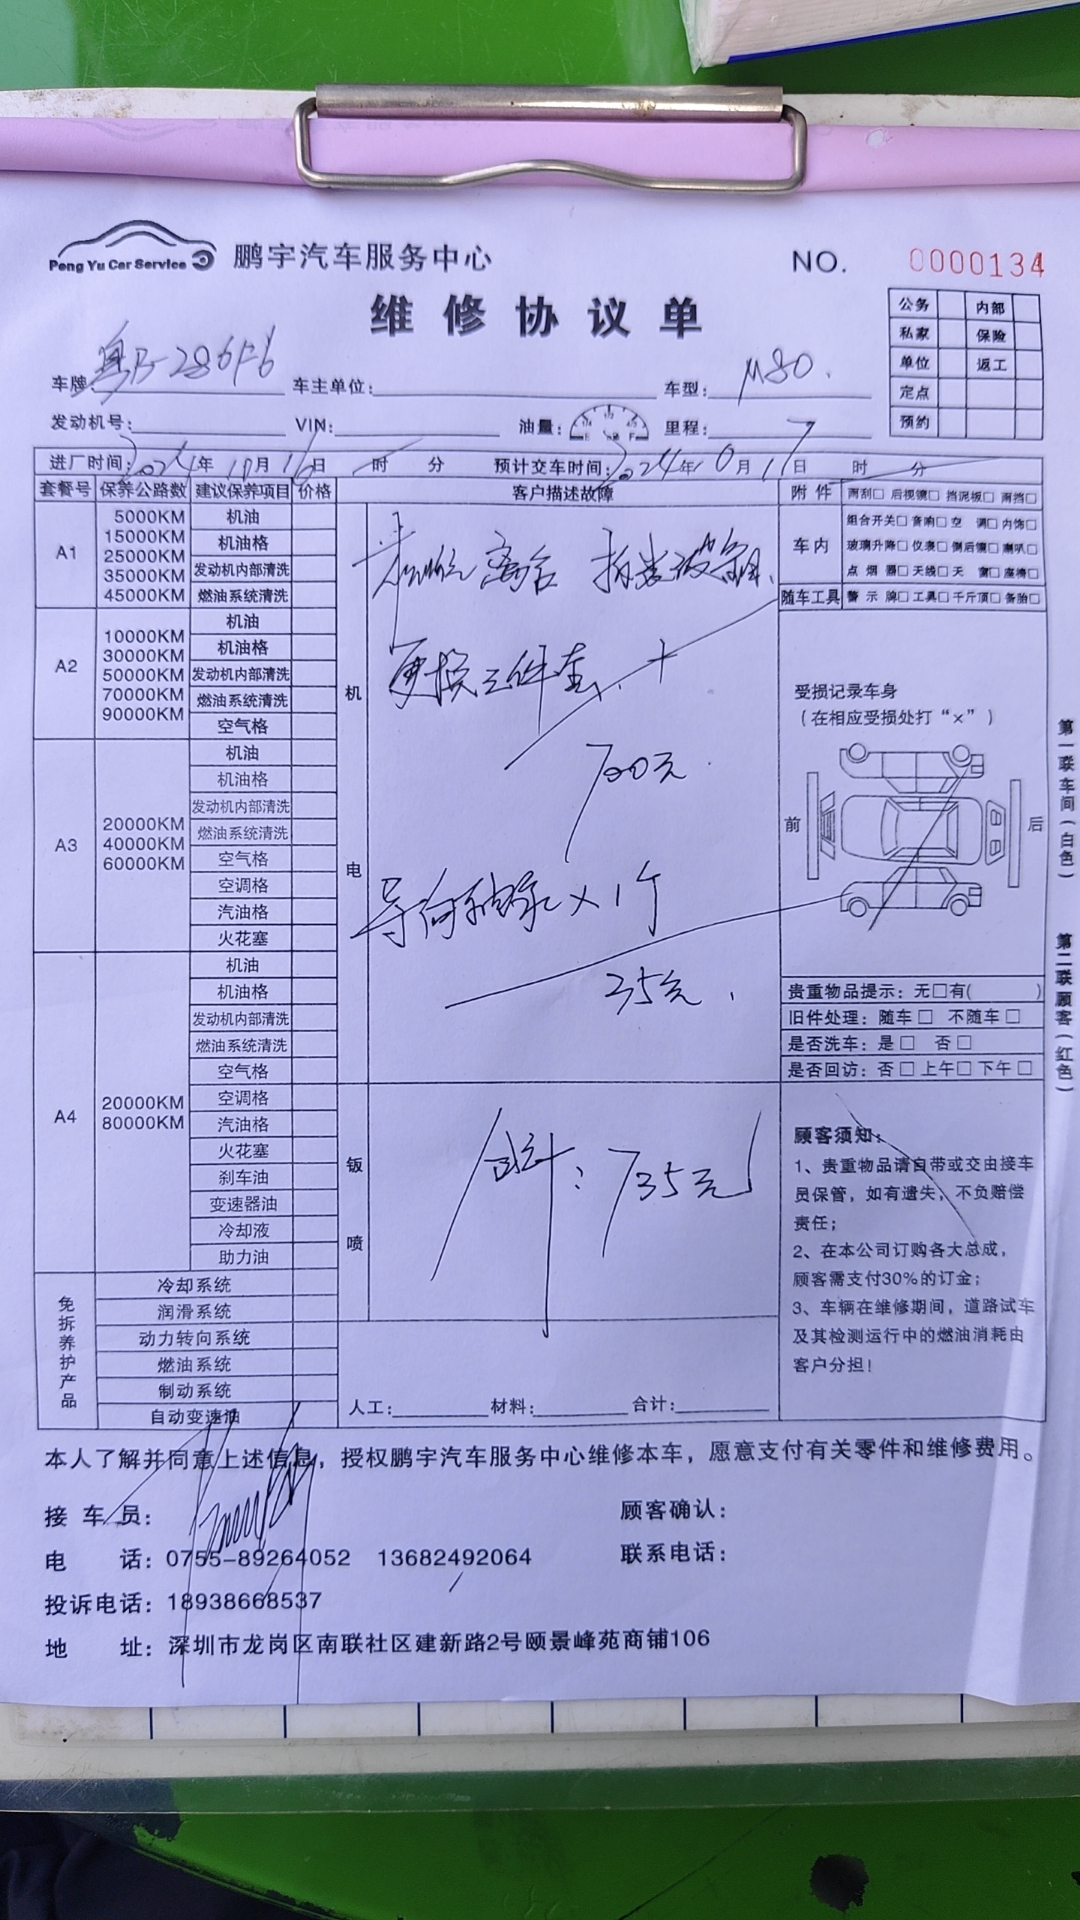 Peng Yu Car Service 鹏宇汽车服务中心 NO. 0000134
维修协议单
公务 内部
私家 保险
单位 返工
定点
预约
车牌 粤B-286F6 车主单位: 车型: M80.
发动机号: VIN: 油量: 里程:
进厂时间: 2024年10月16日 时 分 预计交车时间: 2024年10月17日 时 分
套餐号 保养公路数 建议保养项目 价格 客户描述故障 附件 雨刮□ 后视镜□ 挡泥板□ 雨挡□
A1
5000KM
15000KM
25000KM
35000KM
45000KM
机油
机油格
发动机内部清洗
燃油系统清洗
A2
10000KM
30000KM
50000KM
70000KM
90000KM
机油
机油格
发动机内部清洗
燃油系统清洗
空气格
A3
20000KM
40000KM
60000KM
机油
机油格
发动机内部清洗
燃油系统清洗
空气格
空调格
汽油格
火花塞
A4
20000KM
80000KM
机油
机油格
发动机内部清洗
燃油系统清洗
空气格
空调格
汽油格
火花塞
刹车油
变速器油
冷却液
助力油
免拆养护产品
冷却系统
润滑系统
动力转向系统
燃油系统
制动系统
自动变速油
机
电
离合
更换三件套
700元
导向轴承×1个
35元
钣
喷
合计: 735元
人工: 材料: 合计:
车内
组合开关□ 音响□ 空 调□ 内饰□
玻璃升降□ 仪表□ 倒后镜□ 喇叭□
点 烟 器□ 天线□ 天 窗□ 座椅□
随车工具 警 示 牌□ 工具□ 千斤顶□ 备胎□
受损记录车身
(在相应受损处打“×”)
前 后
贵重物品提示: 无□有( )
旧件处理: 随车□ 不随车□
是否洗车: 是□ 否□
是否回访: 否□ 上午□ 下午□
顾客须知:
1、贵重物品请自带或交由接车
员保管, 如有遗失, 不负赔偿
责任;
2、在本公司订购各大总成,
顾客需支付30%的订金;
3、车辆在维修期间, 道路试车
及其检测运行中的燃油消耗由
客户分担!
第一联车间(白色)
第二联顾客(红色)
本人了解并同意上述信息, 授权鹏宇汽车服务中心维修本车, 愿意支付有关零件和维修费用。
接车员: 顾客确认:
电 话: 0755-89264052 13682492064 联系电话:
投诉电话: 18938668537
地 址: 深圳市龙岗区南联社区建新路2号颐景峰苑商铺106